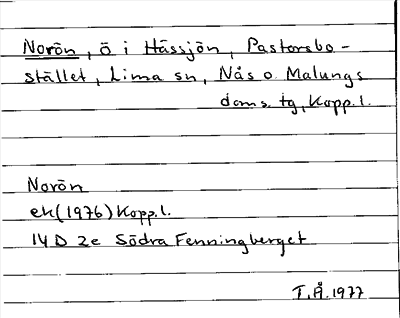 Norön, ö i Hässjön, Pastorsbo-
stället, Lima sn, Nås o. Malungs
doms. tg, Kopp.l.
Norön
ek(1976) Kopp.l.
14D 2e Södra Fenningberget
T.Å. 1977